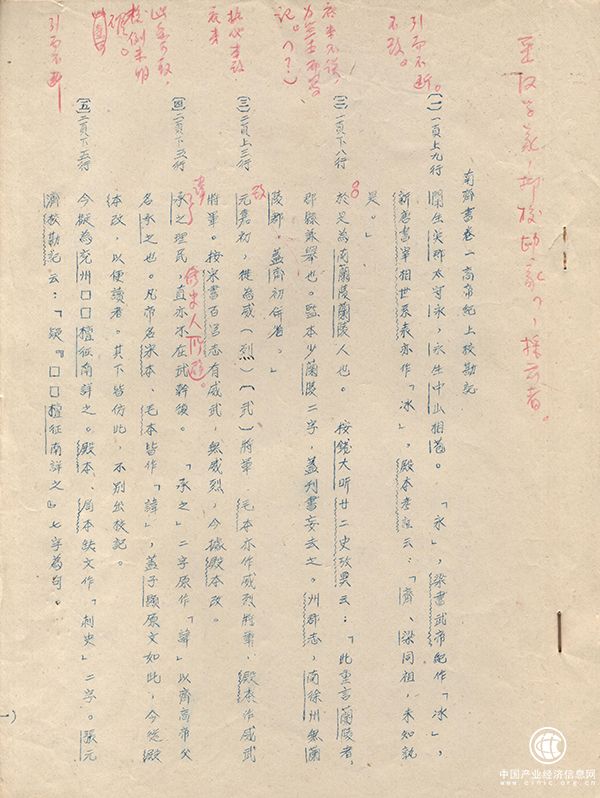 南齊書卷一高帝紀上校勘記
〔一〕一頁上九行
闡生吳郡太守永,永生中山相苞。 「永」,梁書武帝紀作「冰」,
新唐書宰相世系表亦作「冰」。殿本考證云:「齊、梁同祖,未知孰
是。」
〔二〕一頁下八行
於是為南蘭陵蘭陵人也。 按錢大昕廿二史攷異云:「此重言蘭陵者,
郡縣兼舉也。監本少蘭陵二字,蓋刊書妄去之。州郡志,南徐州無蘭
陵郡。蓋齊初併省。」
〔三〕二頁上三行
元嘉初,徙為威(烈)〔武〕將軍 毛本亦作威烈將軍,殿本作威武
將軍。按宋書百官志有威武,無威烈,今據殿本改。
〔四〕二頁下三行
承之理民,直亦不在武幹後。 「承之」二字原作「諱」以齊高帝父
名承之也。凡帝名宋本、毛本皆作「諱」,蓋子顯原文如此,今從殿
本改,以便讀者。其下皆仿此,不別出校記。
〔五〕二頁下五行
今擬為兗州□□檀征南詳之。殿本、局本缺文作「刺史」二字。張元
濟校勘記云:「疑『□□檀征南詳之』七字為句。
引而不斷。
不改。
校例未明
引而不斷
(一)
中国产业经济信息网
www.cinic.org.cn